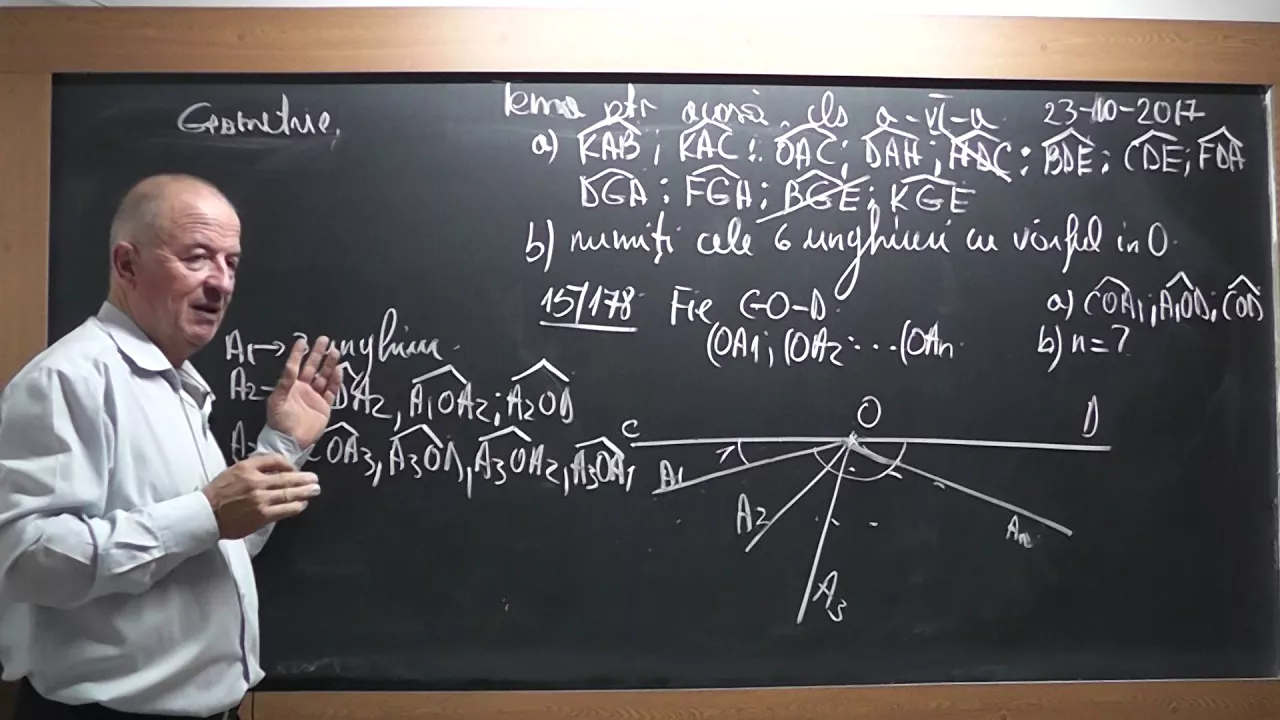 Geometrie,
Tema ptr acasă, cls a-VI-a 23-10-2017
a) KAB; KAC; OAC; DAH; HDC; BDE; CDE; FDA
DGA; FGA; BGE; KGE
b) numiți cele 6 unghiuri cu vârful în O.
15/178 Fie C-O-D
(OA1; (OA2...(OAn
a) COA1; A1OD; COD
b) n=?
A1→3 unghiuri.
A2 OA2, A1OA2; A2OD
OA3, A3OD, A3OA2, A3OA1
C O D
A1
A2
A3
An